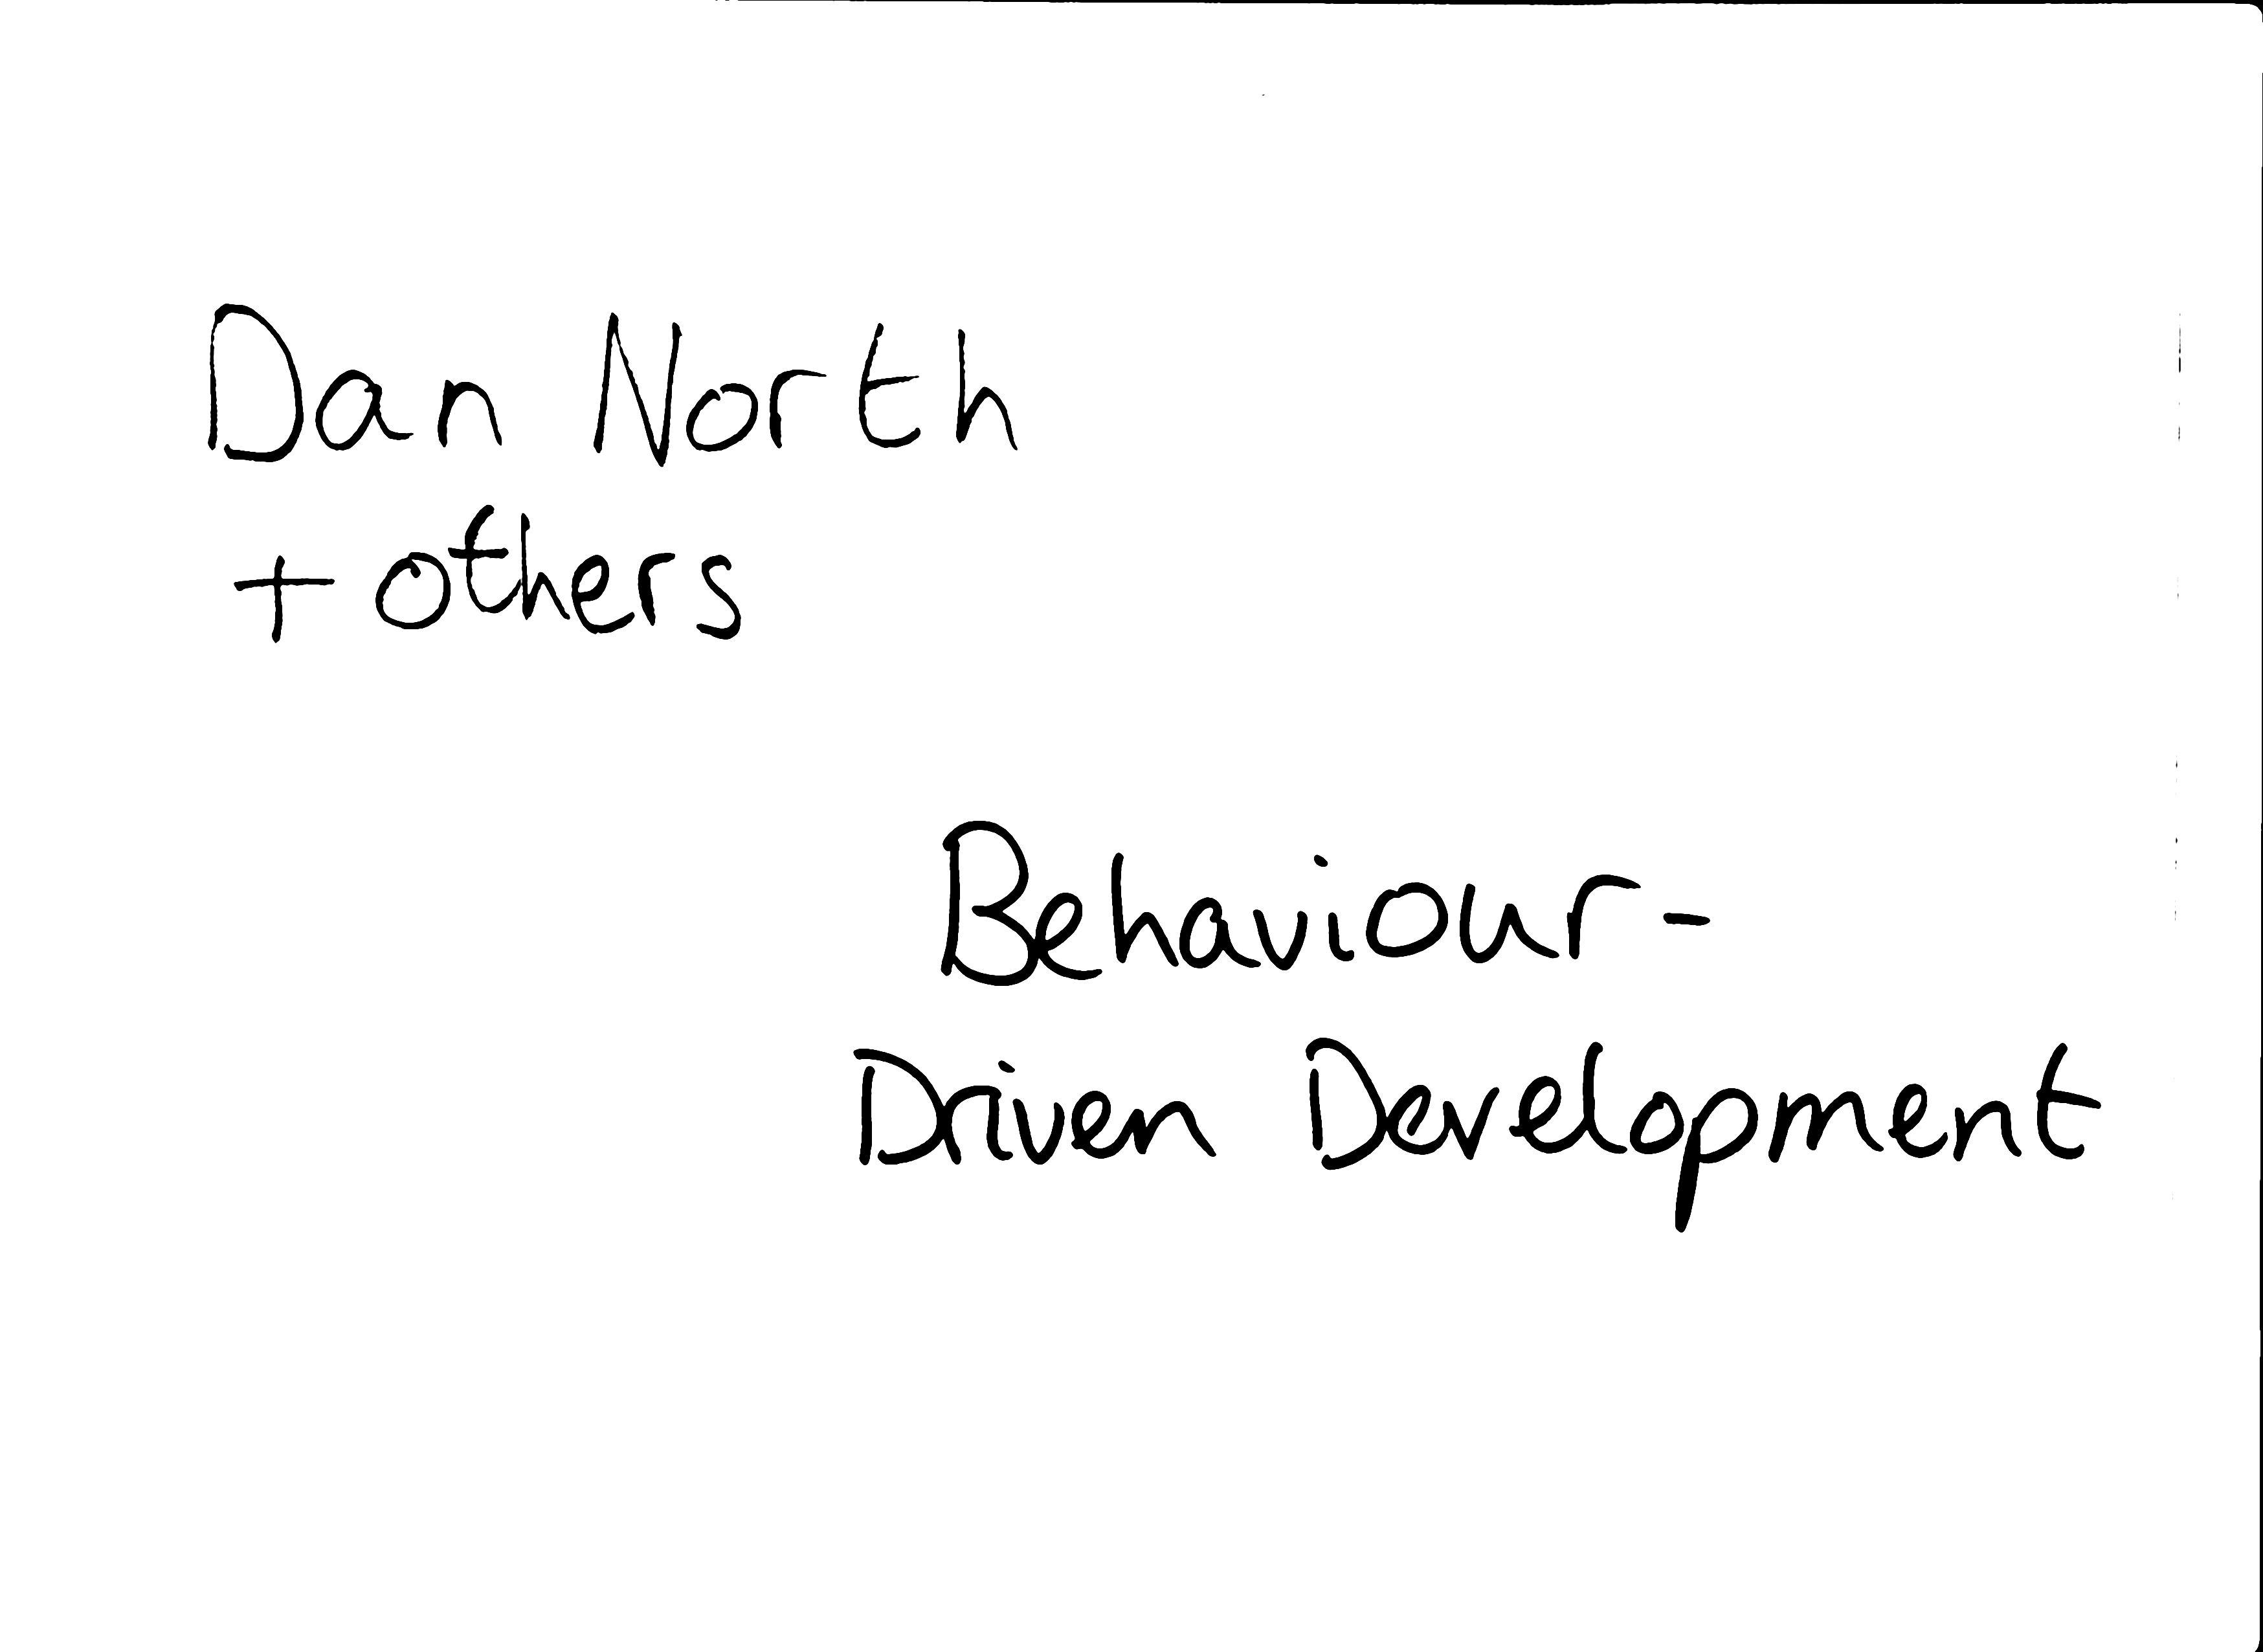 Dan North
+ others
Behaviour-
Driven Development